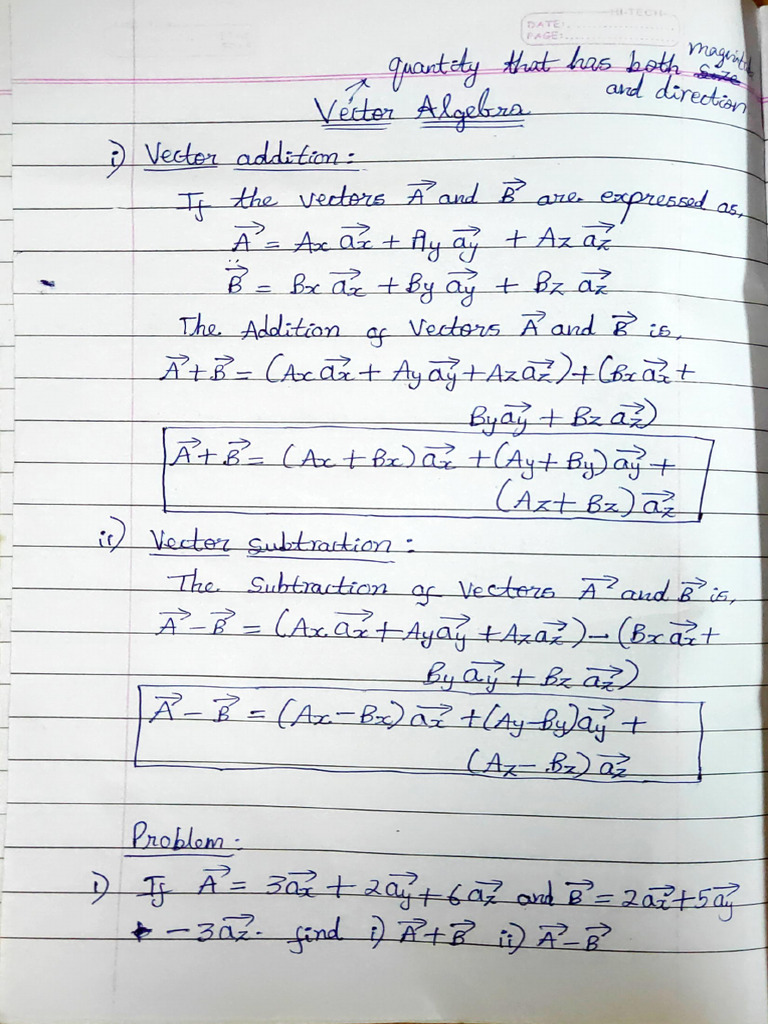 HI-TECH
DATE:
PAGE:
quantity that has both magnitude
and direction
Vector Algebra
i) Vector addition:
If the vectors A⃗ and B⃗ are expressed as,
A⃗ = Ax a⃗x + Ay a⃗y + Az a⃗z
B⃗ = Bx a⃗x + By a⃗y + Bz a⃗z
The Addition of Vectors A⃗ and B⃗ is,
A⃗+B⃗ = (Ax a⃗x + Ay a⃗y + Az a⃗z) + (Bx a⃗x +
By a⃗y + Bz a⃗z)
A⃗+B⃗ = (Ax + Bx) a⃗x + (Ay + By) a⃗y +
(Az + Bz) a⃗z
ii) Vector subtraction:
The Subtraction of Vectors A⃗ and B⃗ is,
A⃗ - B⃗ = (Ax a⃗x + Ay a⃗y + Az a⃗z) - (Bx a⃗x +
By a⃗y + Bz a⃗z)
A⃗ - B⃗ = (Ax - Bx) a⃗x + (Ay - By) a⃗y +
(Az - Bz) a⃗z
Problem:
1) If A⃗ = 3a⃗x + 2a⃗y + 6a⃗z and B⃗ = 2a⃗x + 5a⃗y
- 3a⃗z. find i) A⃗+B⃗ ii) A⃗-B⃗